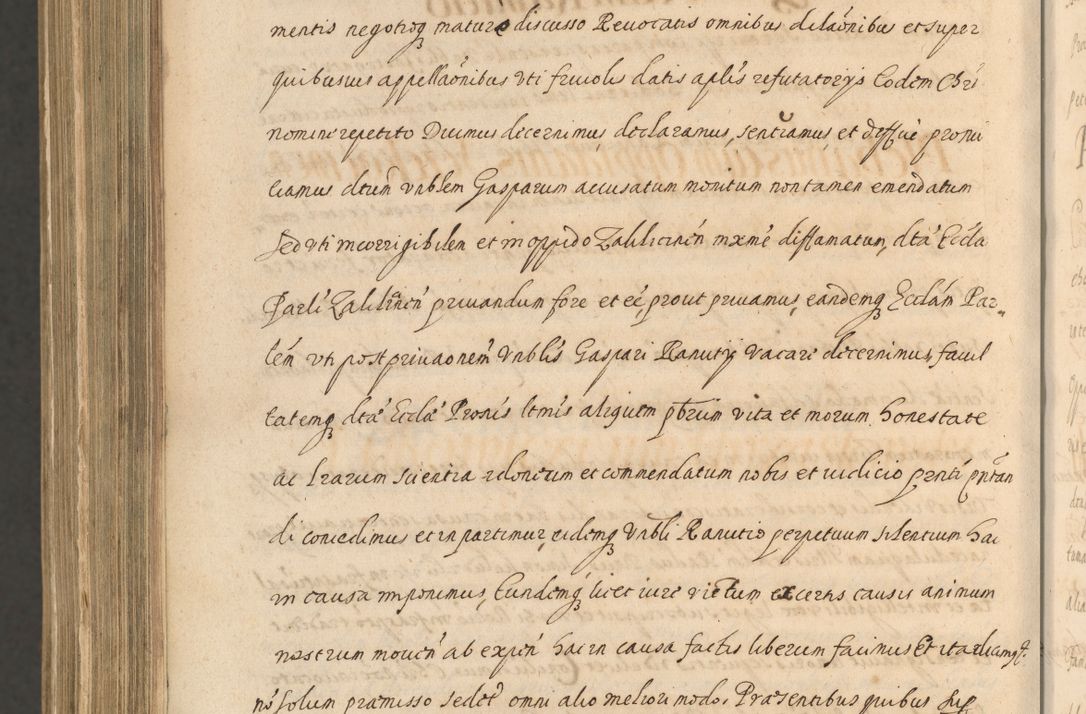 mentis negotioq mature discusso Reuocatis omnibus dilaõnibus et super
quibusuis appellaõnibus vti friuolis datis aplis refutatorijs Eodem Chri
nomine repetito Dicimus decernimus declaramus, sentiamus, et deffiè pronu
ciamus dtum vnblem Gasparum accusatum monitum non tamen emendatum
sed vti incorrigibilem et in oppido Zalilicinen mxmè diffamatum, dtà Eccla
Parli Zalilicinen priuandum fore et eè, prout priuamus, eandemq Ecclam Par
lem vti post priuaonem vnblis Gaspari Ranutij vacare decernimus, facul
tatemq dtae Ecclae Pronis ltmis aliquem pbrum vita et morum honestate
ac lrarum scientia idoneum et commendatum nobis et iudicio prnti pntan
di concedimus et inpartimur, eidemq vnbli Ranutio perpetuum silentium hac
in causa imponimus, Eundemq licet iure victum ex certis causis animum
nostrum mouen ab expen hac in causa factis liberum facimus Et ita dicimq
nõ solum praemisso sed et omni alio meliori modo. Praesentibus quibus sup